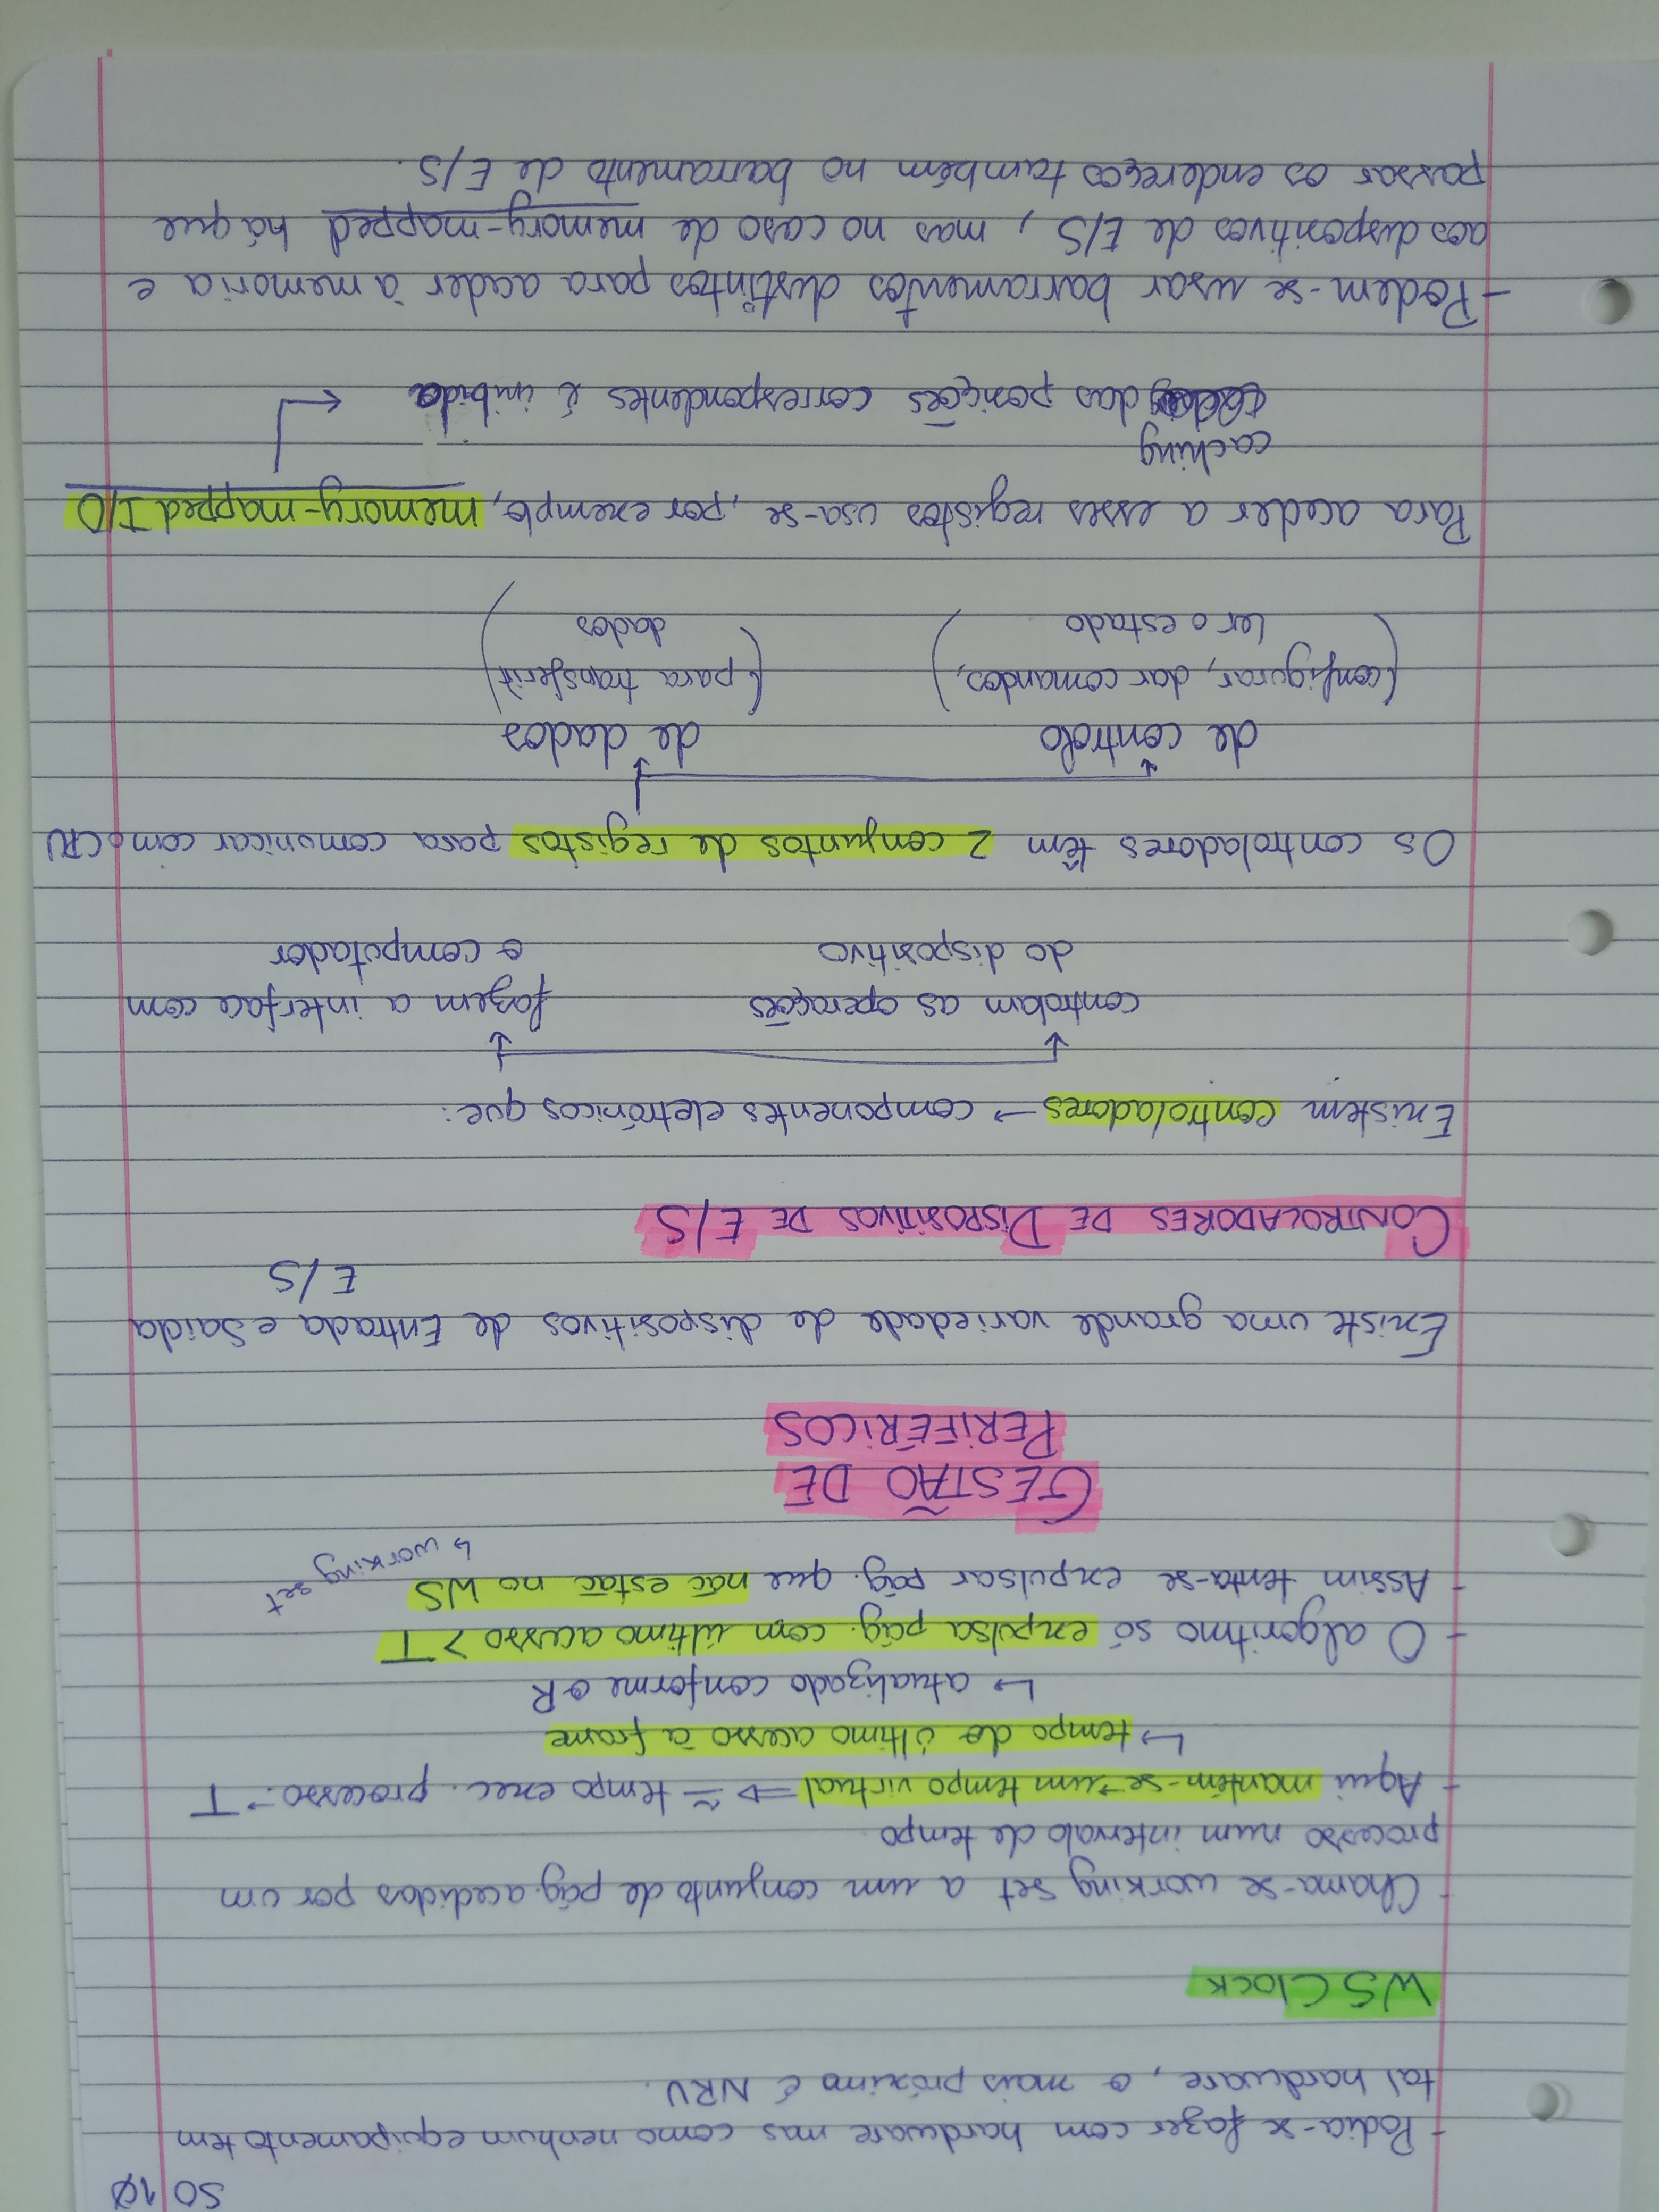 SO 10
- Podia-se fazer com hardware mas como nenhum equipamento tem
tal hardware, o mais próximo é NRU.
WS Clock
- Chama-se working set a um conjunto de pág. acedidas por um
processo num intervalo de tempo
- Aqui mantém-se → um tempo virtual ⇒ ≃ tempo exec. processo: → T
↳ tempo do último acesso à frame
↳ atualizado conforme o R
- O algoritmo só expulsa pág. com último acesso > T
- Assim tenta-se expulsar pág. que não estão no WS
↳ working set
GESTÃO DE
PERIFÉRICOS
Existe uma grande variedade de dispositivos de Entrada e Saída
E/S
CONTROLADORES DE DISPOSITIVOS DE E/S
Existem controladores → componentes eletrónicos que:
controlam as operações fazem a interface com
do dispositivo o computador
Os controladores têm 2 conjuntos de registos para comunicar com o CPU
de controlo de dados
(configurar, dar comandos, (para transferir
ler o estado) dados)
Para aceder a esses registos usa-se, por exemplo, memory-mapped I/O
caching
das posições correspondentes é inibida ←
- Podem-se usar barramentos distintos para aceder à memoria e
aos dispositivos de E/S, mas no caso de memory-mapped há que
passar os endereços também no barramento de E/S.